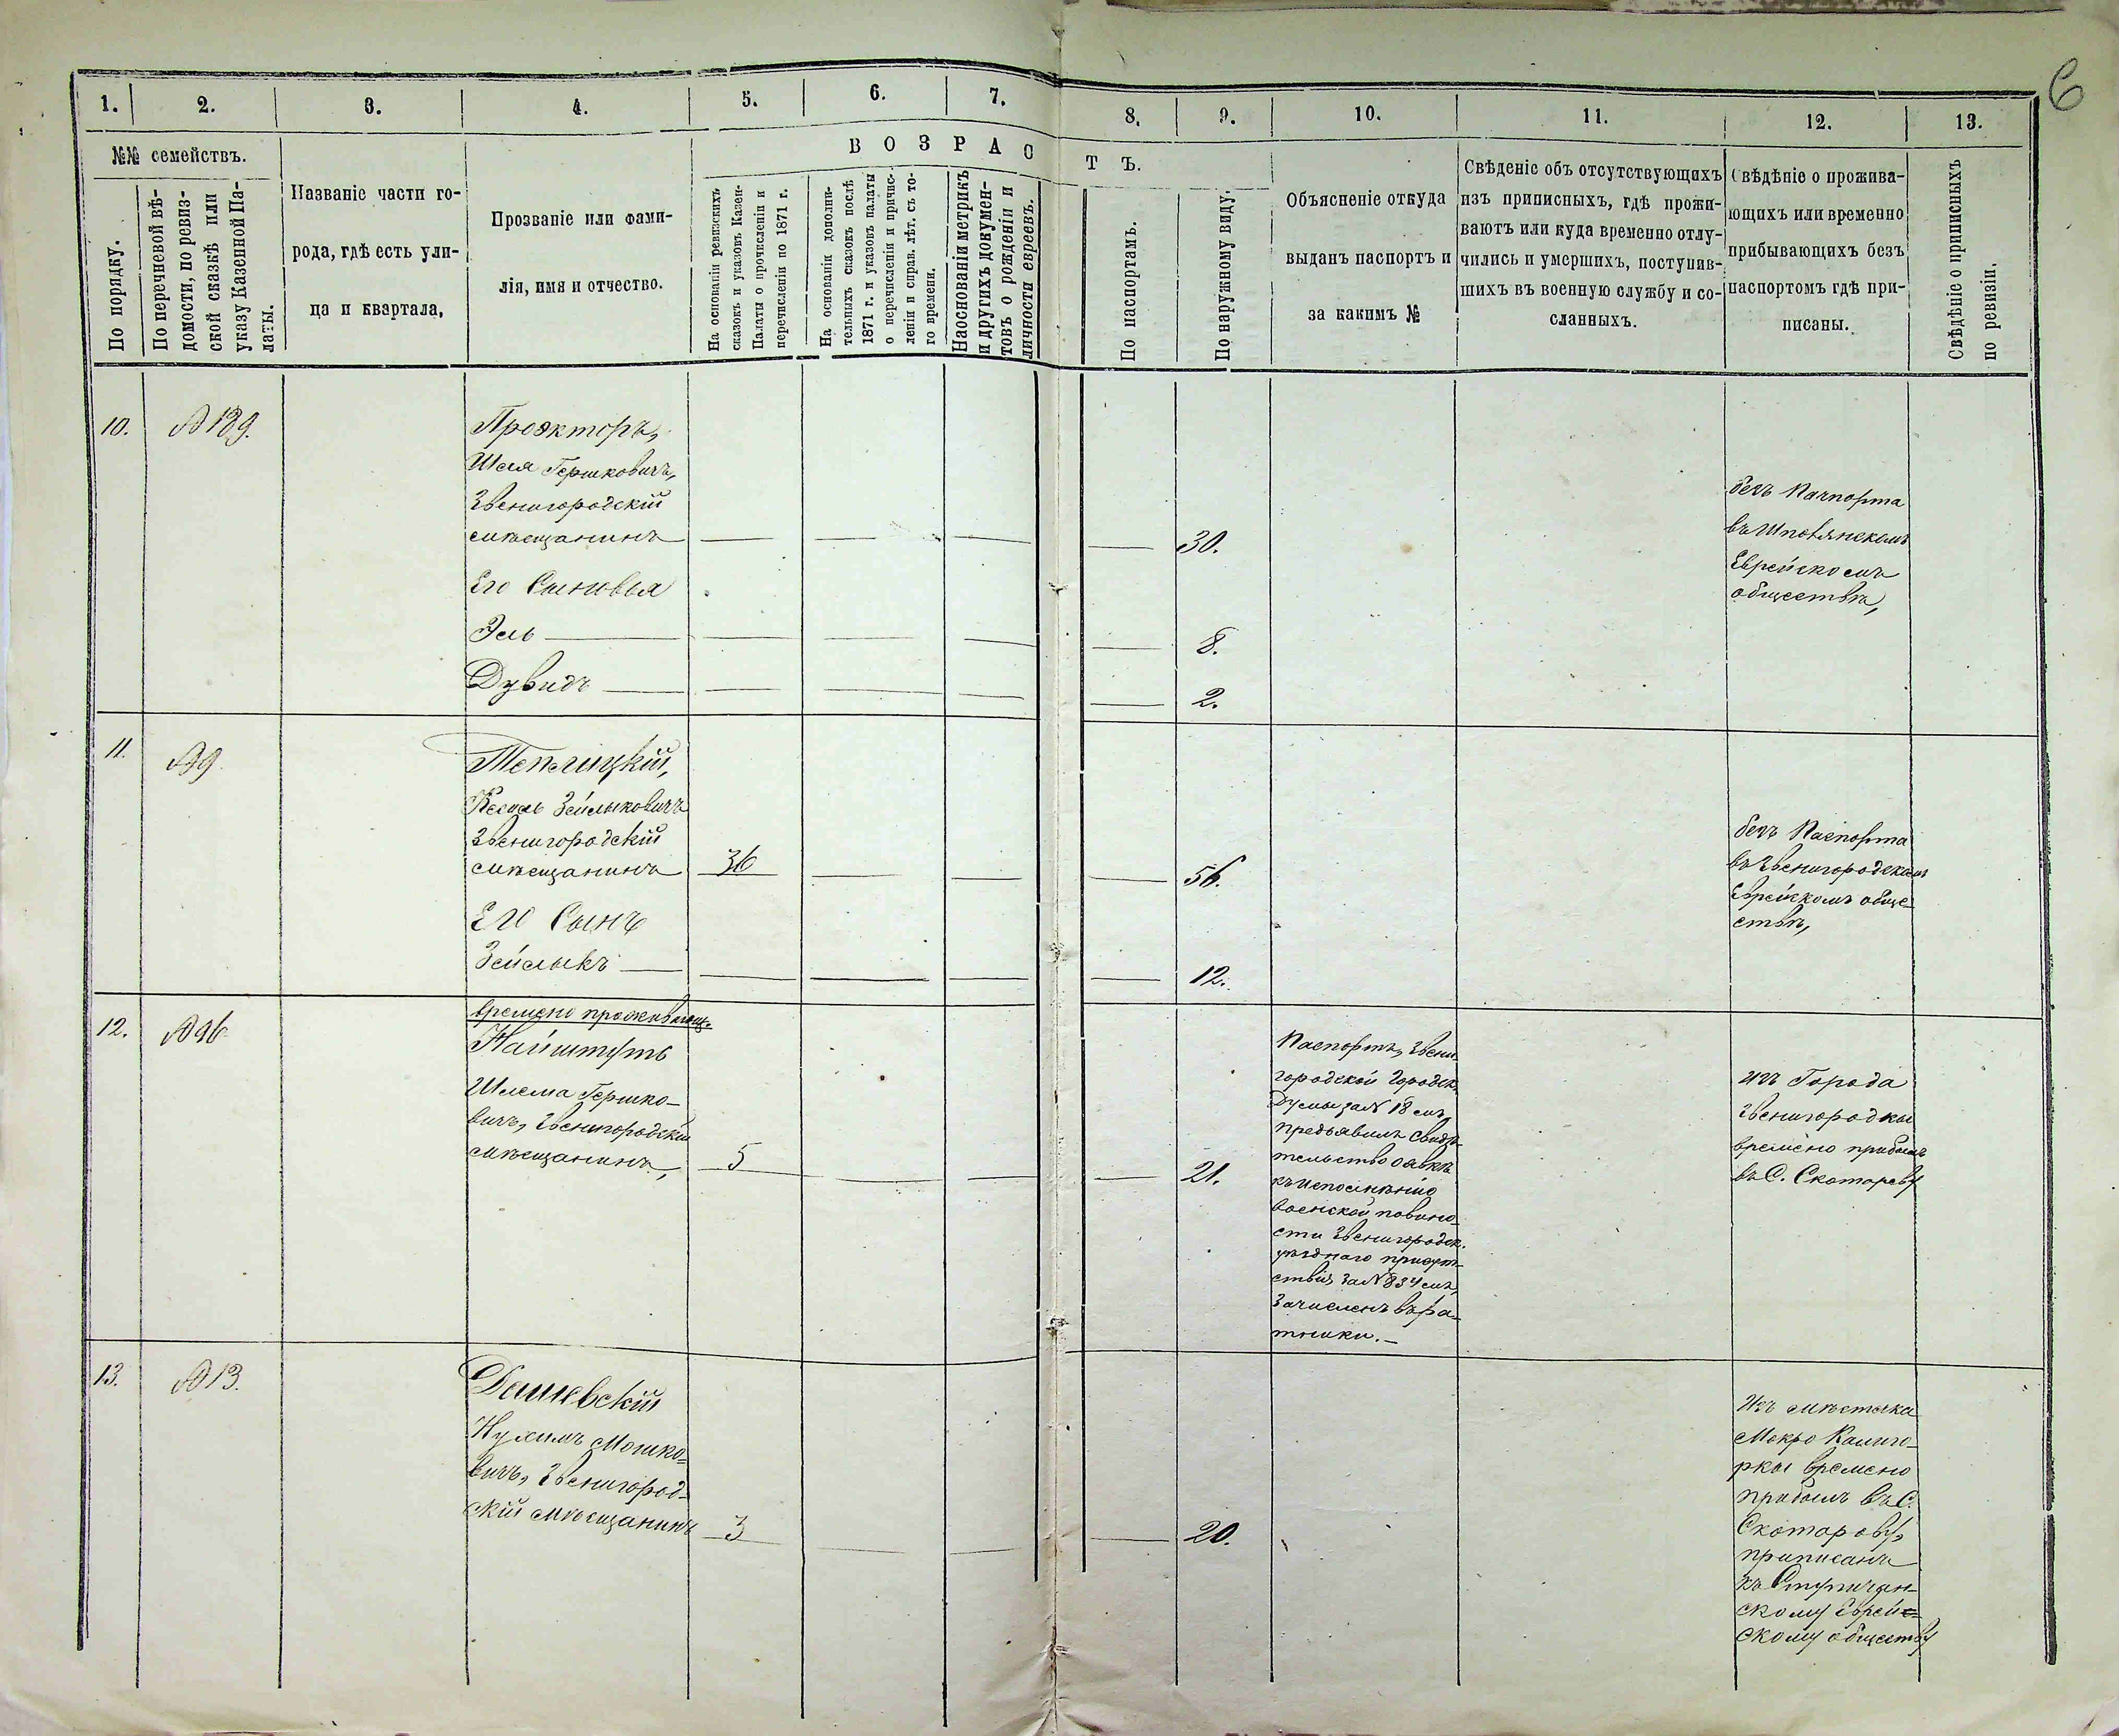 6
1. 2. 3. 4. 5. 6. 7. 8. 9. 10. 11. 12. 13.
№№ семействъ.
По порядку.
По перечневой вѣ-
домости, по ревиз-
ской сказкѣ или
указу Казенной Па-
латы.
Названіе части го-
рода, гдѣ есть ули-
ца и квартала,
Прозваніе или фами-
лія, имя и отчество.
ВОЗРАСТЪ.
На основаніи ревизскихъ
сказокъ и указовъ Казен-
Палаты о прочисленіи и
перечисленіи по 1871 г.
На основаніи дополни-
тельныхъ сказокъ послѣ
1871 г. и указовъ палаты
о перечисленіи и причис-
леніи и справ. лѣт. съ то-
го времени.
На основаніи метрикъ
и другихъ докумен-
товъ о рожденіи и
личности евреевъ.
По паспортамъ.
По наружному виду.
Объясненіе откуда
выданъ паспортъ и
за какимъ №
Свѣденіе объ отсутствующихъ
изъ приписныхъ, гдѣ прожи-
ваютъ или куда временно отлу-
чились и умершихъ, поступив-
шихъ въ военную службу и со-
сланныхъ.
Свѣдѣніе о прожива-
ющихъ или временно
прибывающихъ безъ
паспортомъ гдѣ при-
писаны.
Свѣдѣніе о приписныхъ
по ревизіи.
10. № 189.
Прозкторъ,
Шая Гершковичъ,
Звенигородскій
мѣщанинъ 30.
Его Сыновья
Эль 8.
Дувидъ 2.
безъ Пачпорта
въ Шполянскомъ
Еврейскомъ
обществѣ,
11. № 9
Теплицкій,
Кесиль Зейлыковичъ
Звенигородскій
мѣщанинъ 36 56.
Его Сынъ
Зейлыкъ 12.
безъ Паспорта
въ Звенигородскомъ
Еврейскомъ обще-
ствѣ,
12. № 96
времено проживающ.
Найштутъ
Шлема Гершко-
вичъ, Звенигородскій
мѣщанинъ, 5 21.
Паспортъ, Звени-
городской Городск.
Думы за № 18 мъ,
предъявилъ Свидѣ-
тельство о явкѣ
къ исполненію
воинской повино-
сти Звенигородск.
уѣзднаго присут-
ствія за № 834 мъ,
Зачисленъ въ ра-
тники.
изъ Города
Звенигородки
времено прибылъ
въ С. Скотареву
13. № 13.
Дашевскій
Нухимъ Мошко-
вичъ, Звенигород-
скій мѣщанинъ 3 20.
Изъ мѣстечка
Мокро Калиго-
рки времено
прибылъ въ С.
Скотарову,
приписанъ
къ Ступичан-
скому Еврей-
скому обществу